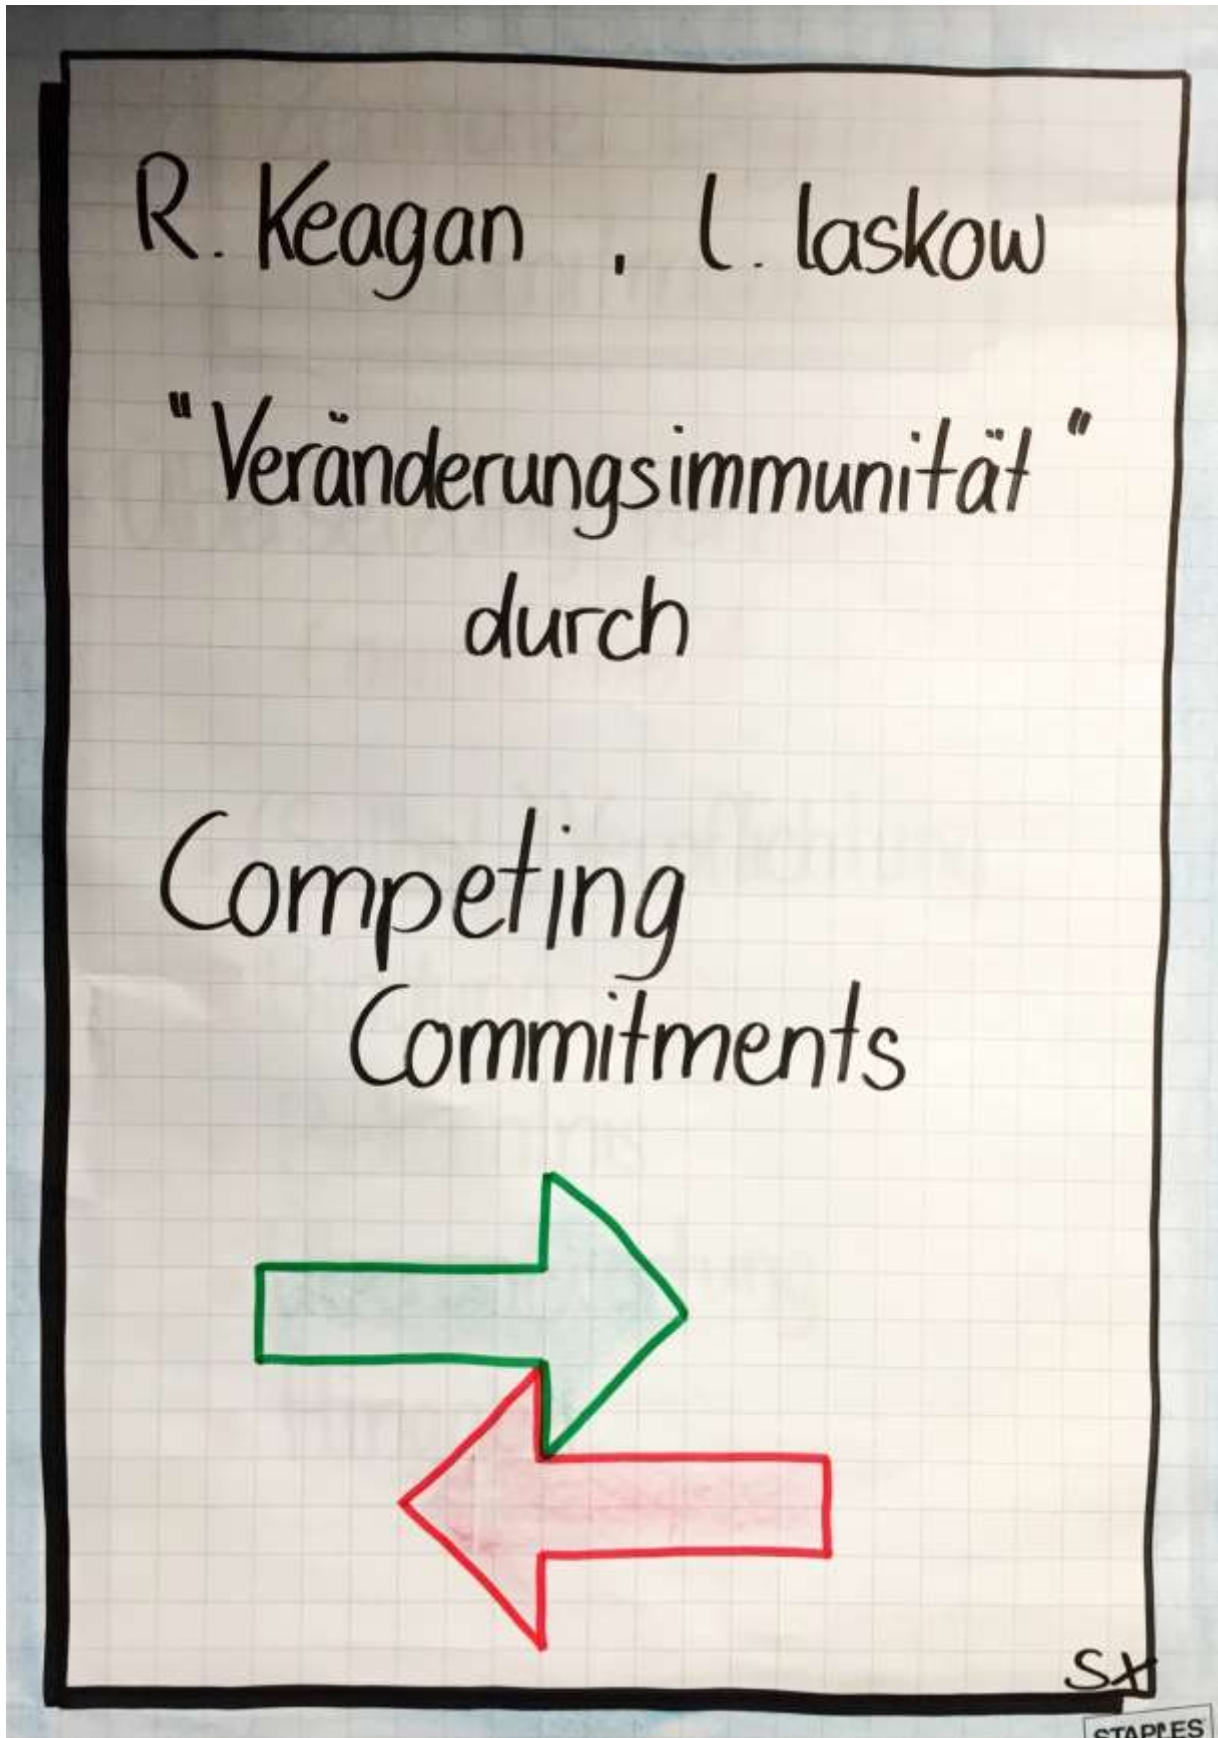 R. Keagan, L. laskow
"Veränderungsimmunität"
durch
Competing
Commitments
STAPLES